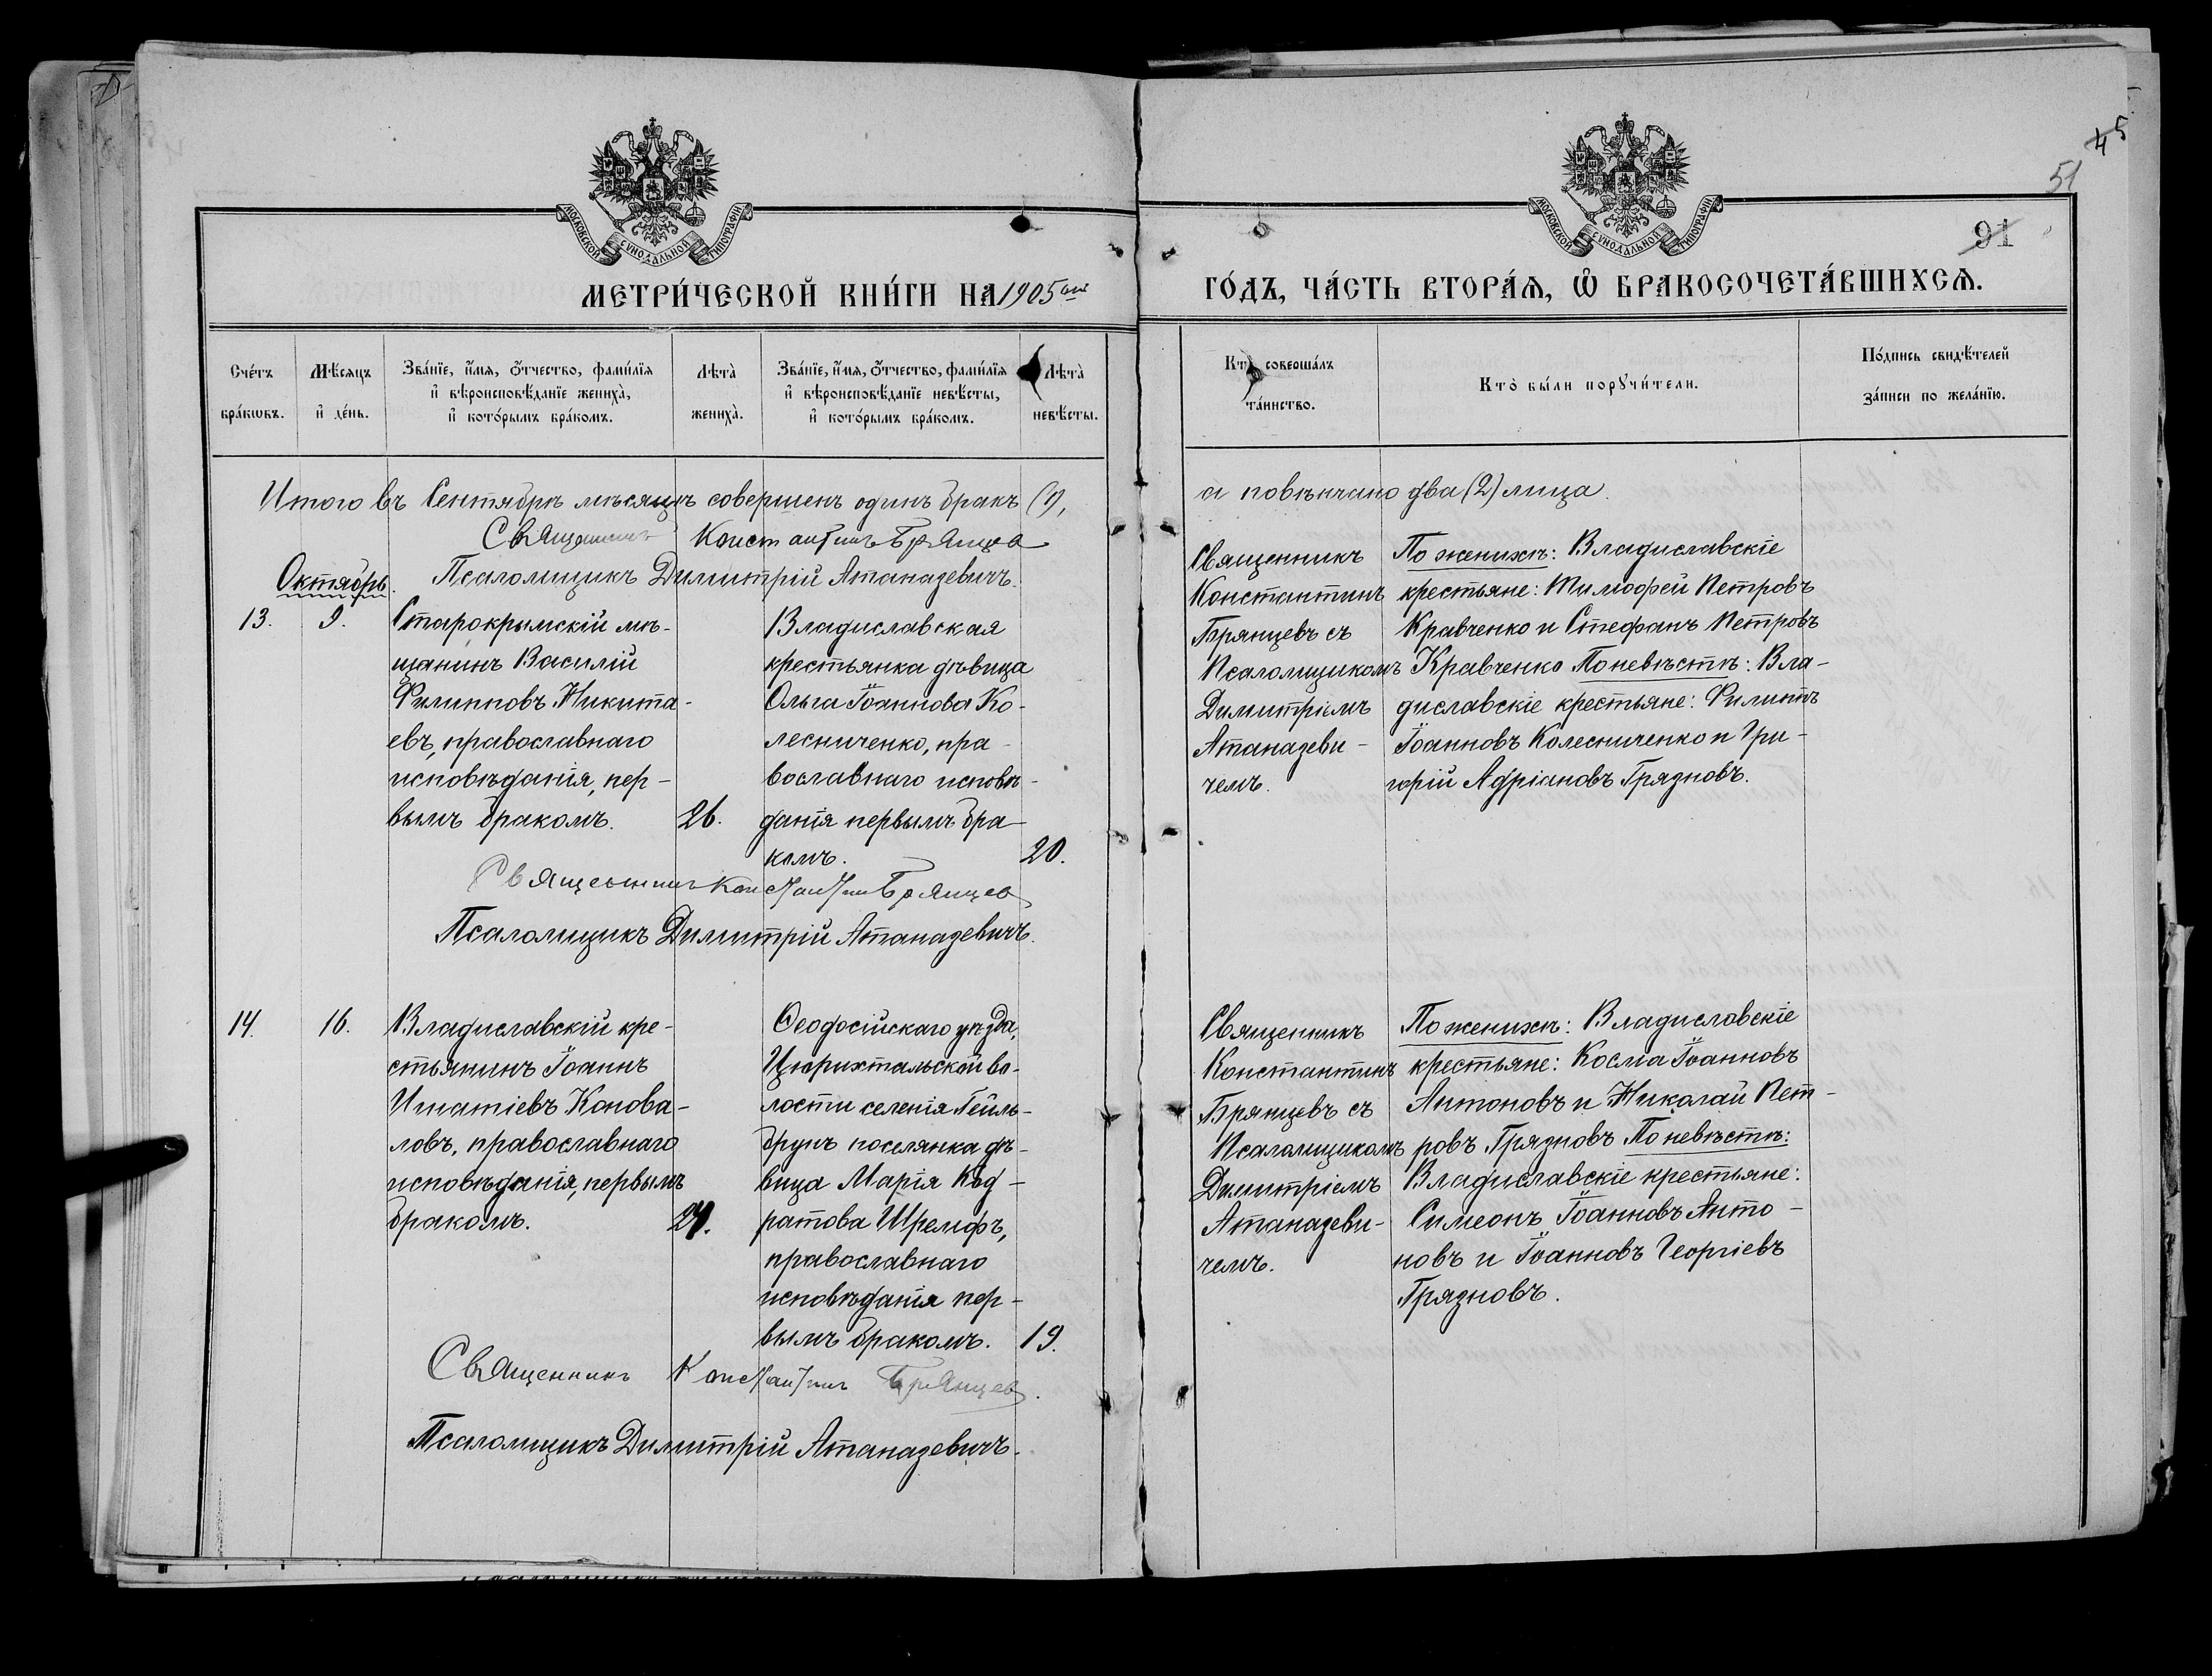 45
51
91
МОСКОВСКОЙ СѴНОДАЛЬНОЙ ТИПОГРАФІИ
МОСКОВСКОЙ СѴНОДАЛЬНОЙ ТИПОГРАФІИ
МЕТРИ́ЧЕСКОЙ КНИ́ГИ НА 1905 ый
ГО́ДЪ, ЧА́СТЬ ВТОРА́Я, Ѡ҆ БРАКОСОЧЕТА́ВШИХСѦ.
Сче́тъ бра́кѡвъ.
Мѣ́сяцъ и҆ де́нь.
Зва́нїе, и҆́мя, ѻ҆́тчество, фами́лїя и҆ вѣроисповѣ́данїе жениха̀, и҆ кото́рымъ бра́комъ.
Лѣта̀ жениха̀.
Зва́нїе, и҆́мя, ѻ҆́тчество, фами́лїя и҆ вѣроисповѣ́данїе невѣ́сты, и҆ кото́рымъ бра́комъ.
Лѣта̀ невѣ́сты.
Кто̀ соверша́лъ та́инство.
Кто̀ бы́ли порꙋчи́тели.
По́дпись свидѣ́телей за́писи по жела́нїю.
Итого въ Сентябрѣ мѣсяцѣ совершенъ одинъ бракъ (1),
а повѣнчано два (2) лица.
Священникъ Константинъ Брянцевъ
Псаломщикъ Димитрій Атаназевичъ.
Октябрь.
13.
9.
Старокрымскій мѣ-
щанинъ Василій
Филипповъ Никита-
евъ, православнаго
исповѣданія, пер-
вымъ бракомъ.
26.
Владиславская
крестьянка дѣвица
Ольга Іоаннова Ко-
лесниченко, пра-
вославнаго исповѣ-
данія первымъ бра-
комъ.
20.
Священникъ
Константинъ
Брянцевъ съ
Псаломщикомъ
Димитріемъ
Атаназеви-
чемъ.
По женихѣ: Владиславскіе
крестьяне: Тимофей Петровъ
Кравченко и Стефанъ Петровъ
Кравченко По невѣстѣ: Вла-
диславскіе крестьяне: Филиппъ
Іоанновъ Колесниченко и Гри-
горій Адріановъ Грязновъ.
Священникъ Константинъ Брянцев
Псаломщикъ Димитрій Атаназевичъ.
14.
16.
Владиславскій кре-
стьянинъ Іоаннъ
Игнатіевъ Конова-
ловъ, православнаго
исповѣданія, первымъ
бракомъ.
24.
Ѳеодосійскаго уѣзда,
Цюрихтальской во-
лости селенія Гейль-
брунъ поселянка дѣ-
вица Марія Код-
ратова Шремфъ,
православнаго
исповѣданія пер-
вымъ бракомъ.
19.
Священникъ
Константинъ
Брянцевъ съ
Псаломщикомъ
Димитріемъ
Атаназеви-
чемъ.
По женихѣ: Владиславскіе
крестьяне: Косма Іоанновъ
Антоновъ и Николай Пет-
ровъ Грязновъ По невѣстѣ:
Владиславскіе крестьяне:
Симеонъ Іоанновъ Анто-
новъ и Іоанновъ Георгіевъ
Грязновъ.
Священникъ Константинъ Брянцев.
Псаломщикъ Димитрій Атаназевичъ.